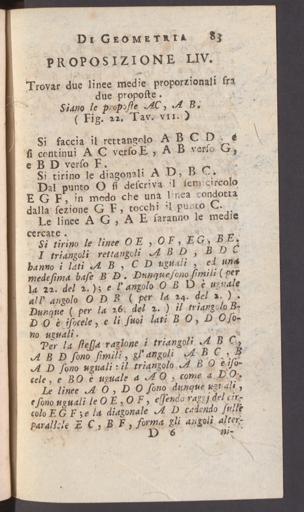 DI GEOMETRIA 83
PROPOSIZIONE LIV.
Trovar due linee medie proporzionali fra
due proposte.
Siano le proposte AC, AB.
( Fig. 22. Tav. VII. )
Si faccia il rettangolo A B C D, e
si continui A C verso E, A B verso G,
e B D verso F.
Si tirino le diagonali A D, B C.
Dal punto O si descriva il semicircolo
E G F, in modo che una linea condotta
dalla sezione G F, tocchi il punto C.
Le linee A G, A E saranno le medie
cercate.
Si tirino le linee OE, OF, EG, BE.
I triangoli rettangoli A B D, B D C
hanno i lati A B, C D uguali, ed una
medesima base B D. Dunque sono simili (per
la 22. del 2.); e l'angolo O B D è uguale
all' angolo O D B ( per la 24. del 2. ).
Dunque ( per la 26. del 2. ) il triangolo B-
D O è isocele, e li suoi lati B O, D O so-
no uguali.
Per la stessa ragione i triangoli A B C,
A B D sono simili, gl'angoli A B C, B
A D sono uguali: il triangolo A B O è iso-
cele, e B O è uguale a A O, come a D O.
Le linee A O, D O sono dunque uguali,
e sono uguali le O E, O F, essendo raggj del cir-
colo E G F; e la diagonale A D cadendo sulle
parallele E C, B F, forma gli angoli alter-
D 6 ni-